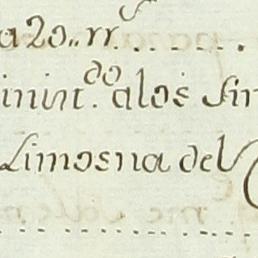 a 20„ rr.ˢ . . . . . .
inint.ᵈᵒ alos Sir
Limosna del